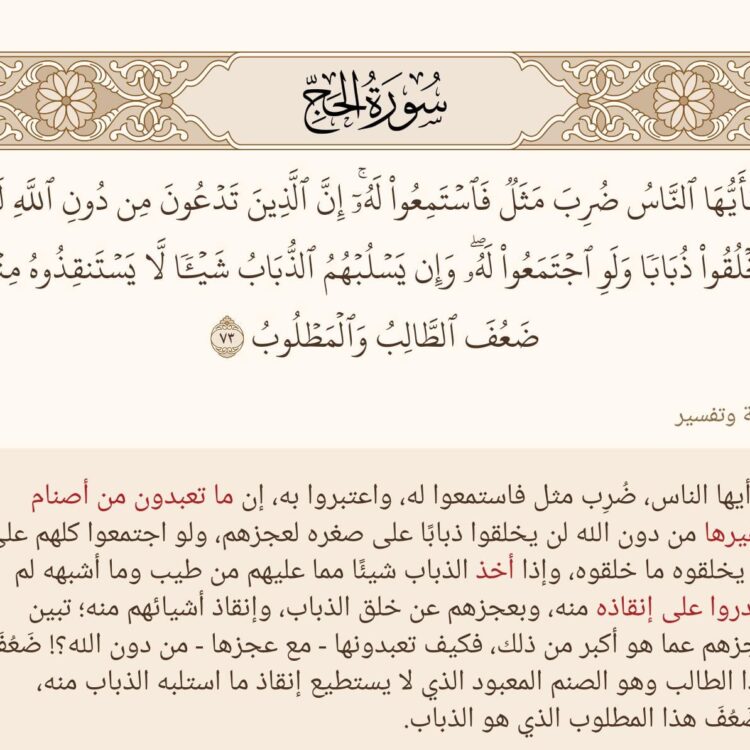 سُورَةُ الحَجِّ
أَيُّهَا ٱلنَّاسُ ضُرِبَ مَثَلٞ فَٱسۡتَمِعُواْ لَهُۥٓۚ إِنَّ ٱلَّذِينَ تَدۡعُونَ مِن دُونِ ٱللَّهِ
خۡلُقُواْ ذُبَابٗا وَلَوِ ٱجۡتَمَعُواْ لَهُۥۖ وَإِن يَسۡلُبۡهُمُ ٱلذُّبَابُ شَيۡـٔٗا لَّا يَسۡتَنقِذُوهُ مِنۡ
ضَعُفَ ٱلطَّالِبُ وَٱلۡمَطۡلُوبُ ٧٣
ة وتفسير
أيها الناس، ضُرِب مثل فاستمعوا له، واعتبروا به، إن ما تعبدون من أصنام
يرها من دون الله لن يخلقوا ذبابًا على صغره لعجزهم، ولو اجتمعوا كلهم على
يخلقوه ما خلقوه، وإذا أخذ الذباب شيئًا مما عليهم من طيب وما أشبهه لم
دروا على إنقاذه منه، وبعجزهم عن خلق الذباب، وإنقاذ أشيائهم منه؛ تبين
جزهم عما هو أكبر من ذلك، فكيف تعبدونها - مع عجزها - من دون الله؟! ضَعُفَ
ذا الطالب وهو الصنم المعبود الذي لا يستطيع إنقاذ ما استلبه الذباب منه،
ضَعُفَ هذا المطلوب الذي هو الذباب.